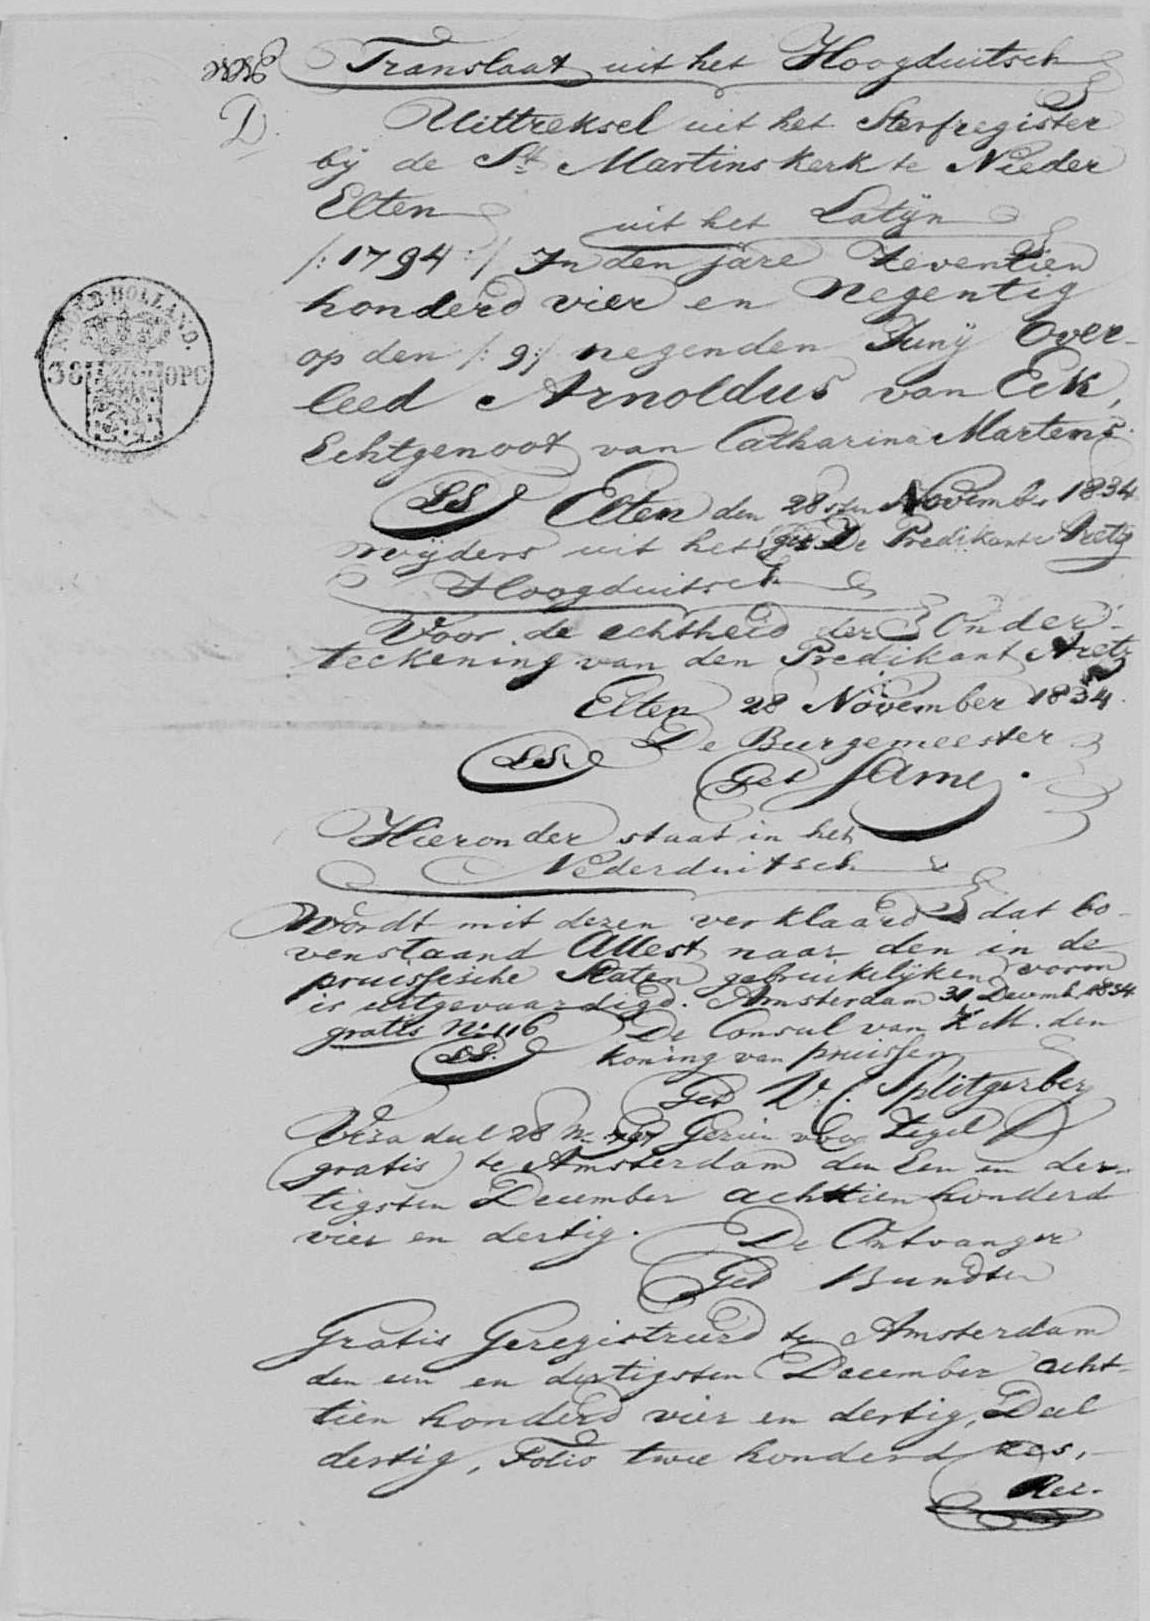 Translaat uit het Hoogduitsch
D.
Uittreksel uit het Sterfregister
bij de St. Martinskerk te Nieder
Elten
uit het Latijn
/: 1794 :/ In den jare Zeventien
honderd vier en negentig
op den /: 9 :/ negenden Junij Over-
leed Arnoldus van Eck,
Echtgenoot van Catharina Martens.
NOORD-HOLLAND.
38 OPC
LS Elten den 28sten November 1834
wijders uit het get De Predikant Aretz
Hoogduitsch
Voor de echtheid der Onder-
teekening van den Predikant Aretz
Elten 28 November 1834.
De Burgemeester
LS Get
Hieronder staat in het
Nederduitsch
Wordt mit dezen verklaard dat bo-
venstaand Attest naar den in de
pruissische Staten gebruikelijken vorm
is uitgevaardigd. Amsterdam 31 Decemb. 1834
gratis No. 116 De Consul van Z. M. den
LS. koning van pruissen
Get W. C. Splitgerber
Visa deel 28 No. Gezien voor Zegel
(gratis) te Amsterdam den Een en der-
tigsten December achttien honderd
vier en dertig. De Ontvanger
Get
Gratis Geregistreerd te Amsterdam
den een en dertigsten December acht-
tien honderd vier en dertig, Deel
dertig, Folio twee honderd zes,
Rec.